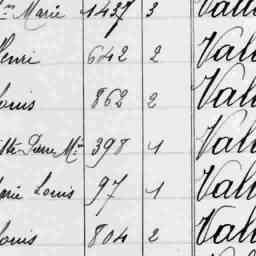 Marie 1437 3 Vall
Henri 642 2 Vall
Louis 862 2 Vall
Pierre Min 398 1 Vall
Louis 97 1 Vall
Louis 804 2 Vall